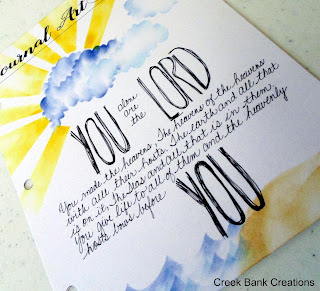 ournal Art
YOU alone are the LORD
You made the heavens. The heavens of the heavens
with all their hosts. The earth and all that
is on it, the seas and all that is in them.
You give life to all of them and the heavenly
hosts bow before YOU
Creek Bank Creations